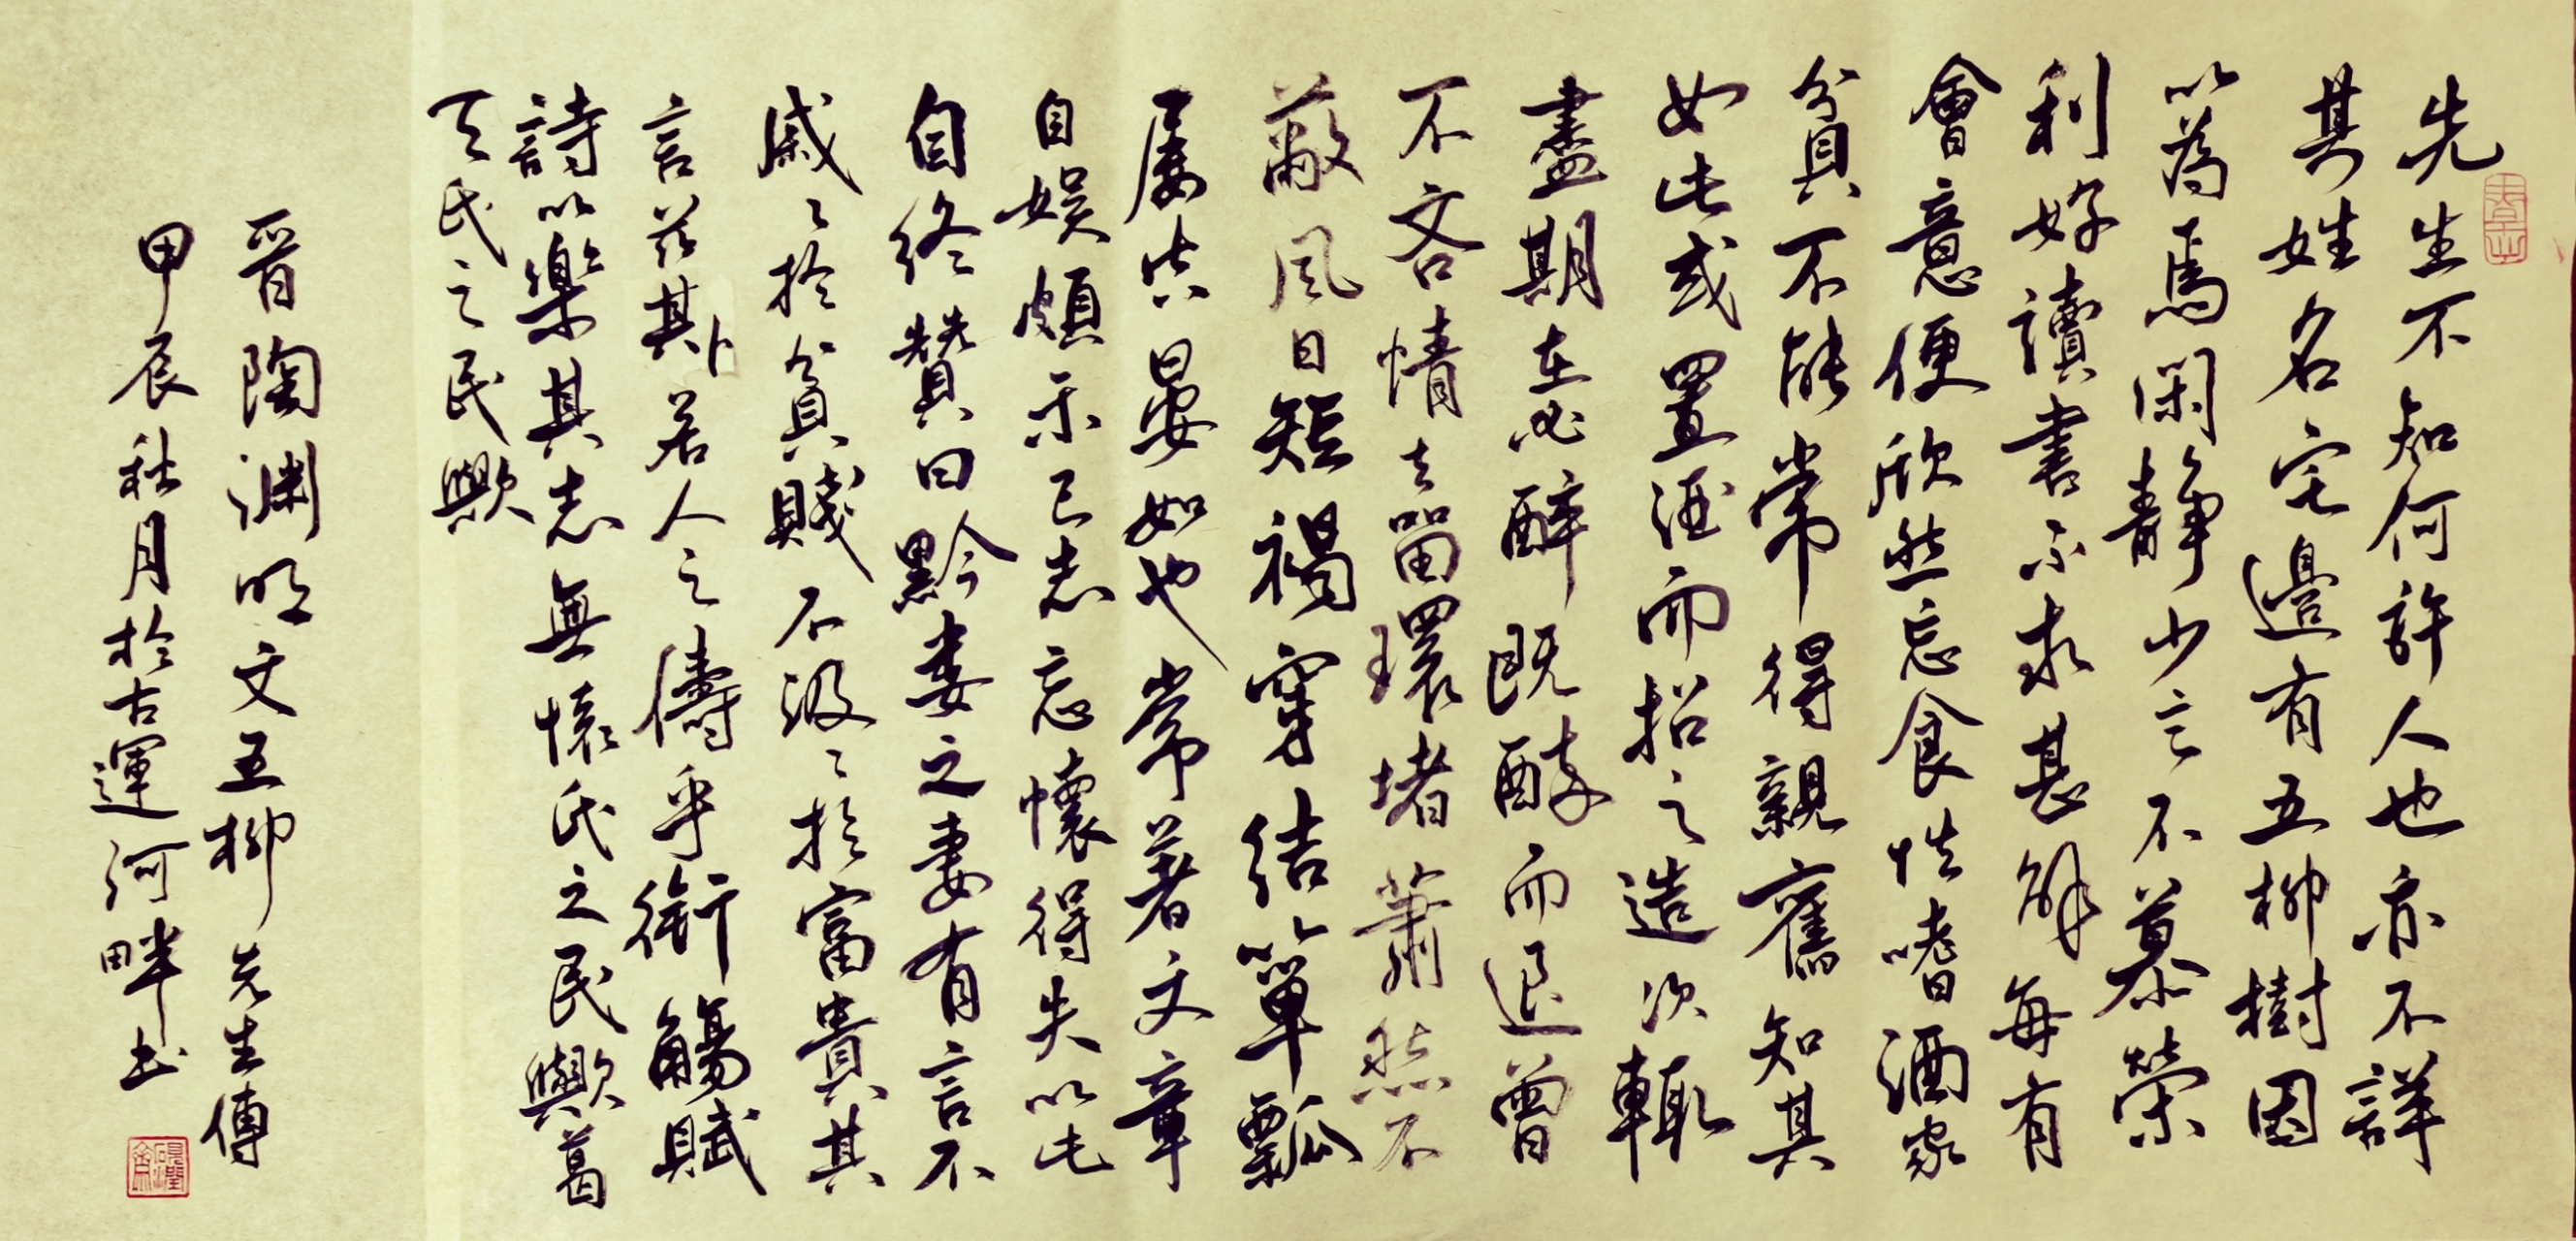 先生不知何許人也亦不詳
其姓名宅邊有五柳樹因
以為焉閑靜少言不慕榮
利好讀書不求甚解每有
會意便欣然忘食性嗜酒家
貧不能常得親舊知其
如此或置酒而招之造次輒
盡期在必醉既醉而退曾
不吝情去留環堵蕭然不
蔽風日短褐穿結簞瓢
屢空晏如也常著文章
自娛頗示己志忘懷得失以此
自終贊曰黔婁之妻有言不
戚〻於貧賤不汲〻於富貴其
言茲斯若人之儔乎銜觴賦
詩以樂其志無懷氏之民歟葛
天氏之民歟
晉陶淵明文五柳先生傳
甲辰秋月於古運河畔書